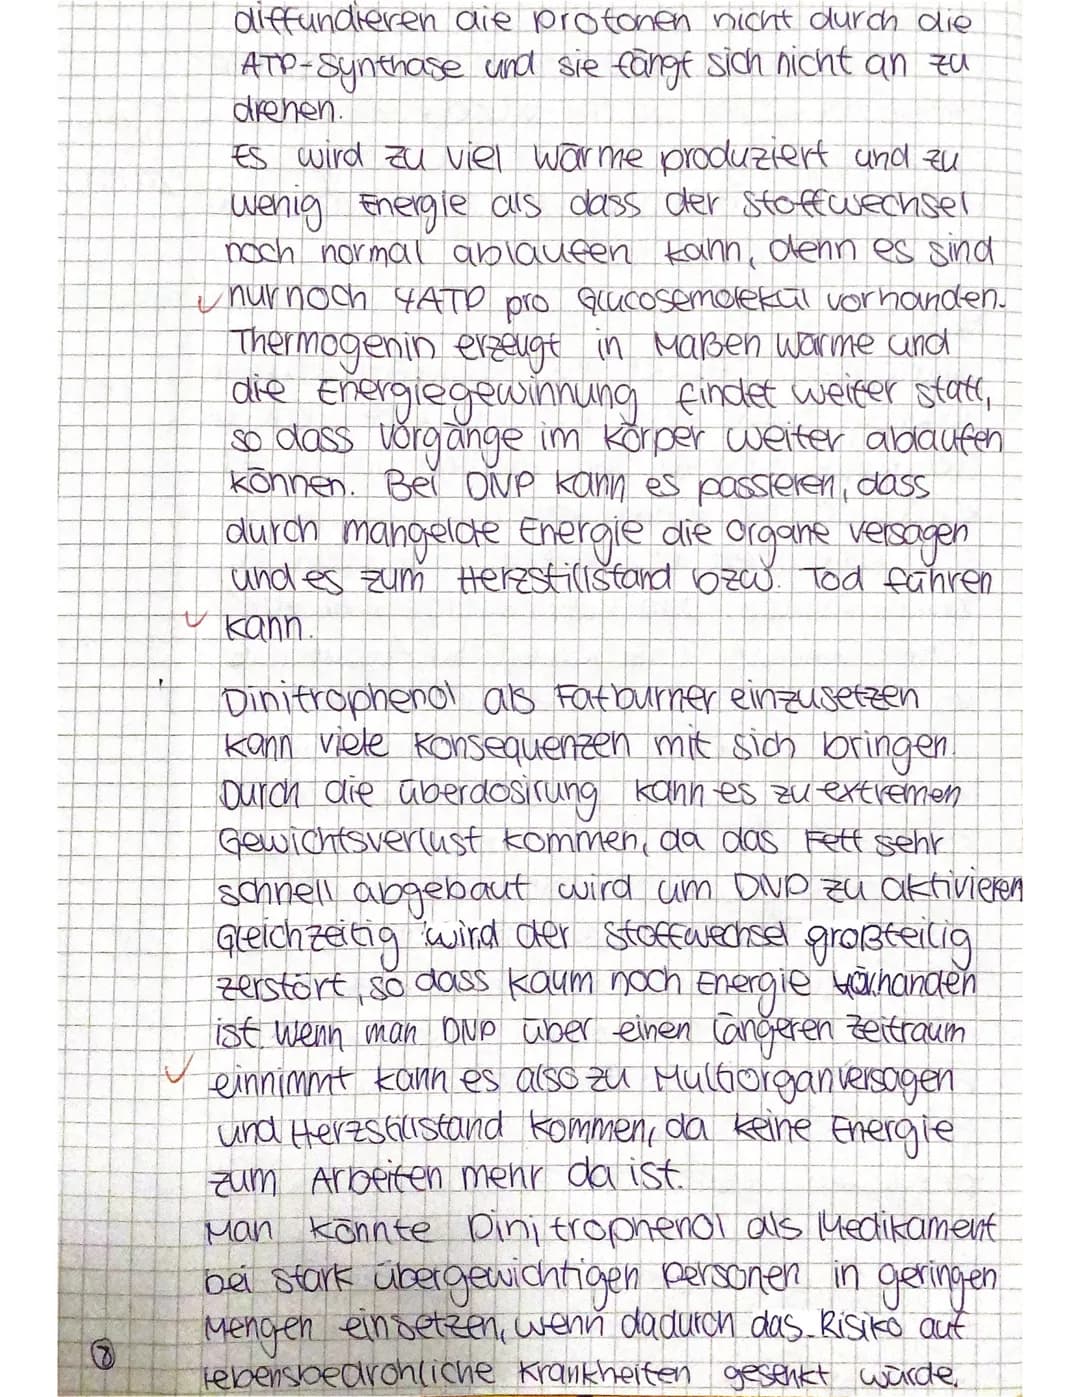 diffundieren die Protonen nicht durch die
ATP-Synthase und sie fängt sich nicht an zu
drehen.
Es wird zu viel Wärme produziert und zu
wenig Energie als dass der Stoffwechsel
noch normal ablaufen kann, denn es sind
nur noch 4ATP pro Glucosemolekül vorhanden.
Thermogenin erzeugt in Maßen Wärme und
die Energiegewinnung findet weiter statt,
so dass Vorgänge im Körper weiter ablaufen
können. Bei DNP kann es passieren, dass
durch mangelde Energie die Organe versagen
und es zum Herzstillstand bzw. Tod führen
kann.
Dinitrophenol als Fatburner einzusetzen
kann viele Konsequenzen mit sich bringen.
Durch die überdosirung kann es zu extremen
Gewichtsverlust kommen, da das Fett sehr
schnell abgebaut wird um DNP zu aktivieren
Gleichzeitig wird der Stoffwechsel großteilig
zerstört, so dass kaum noch Energie vorhanden
ist. Wenn man DNP über einen längeren Zeitraum
einnimmt kann es also zu Multiorganversagen
und Herzstillstand kommen, da keine Energie
zum Arbeiten mehr da ist.
Man könnte Dinitrophenol als Medikament
bei stark übergewichtigen Personen in geringen
Mengen einsetzen, wenn dadurch das Risiko auf
lebensbedrohliche Krankheiten gesenkt würde.